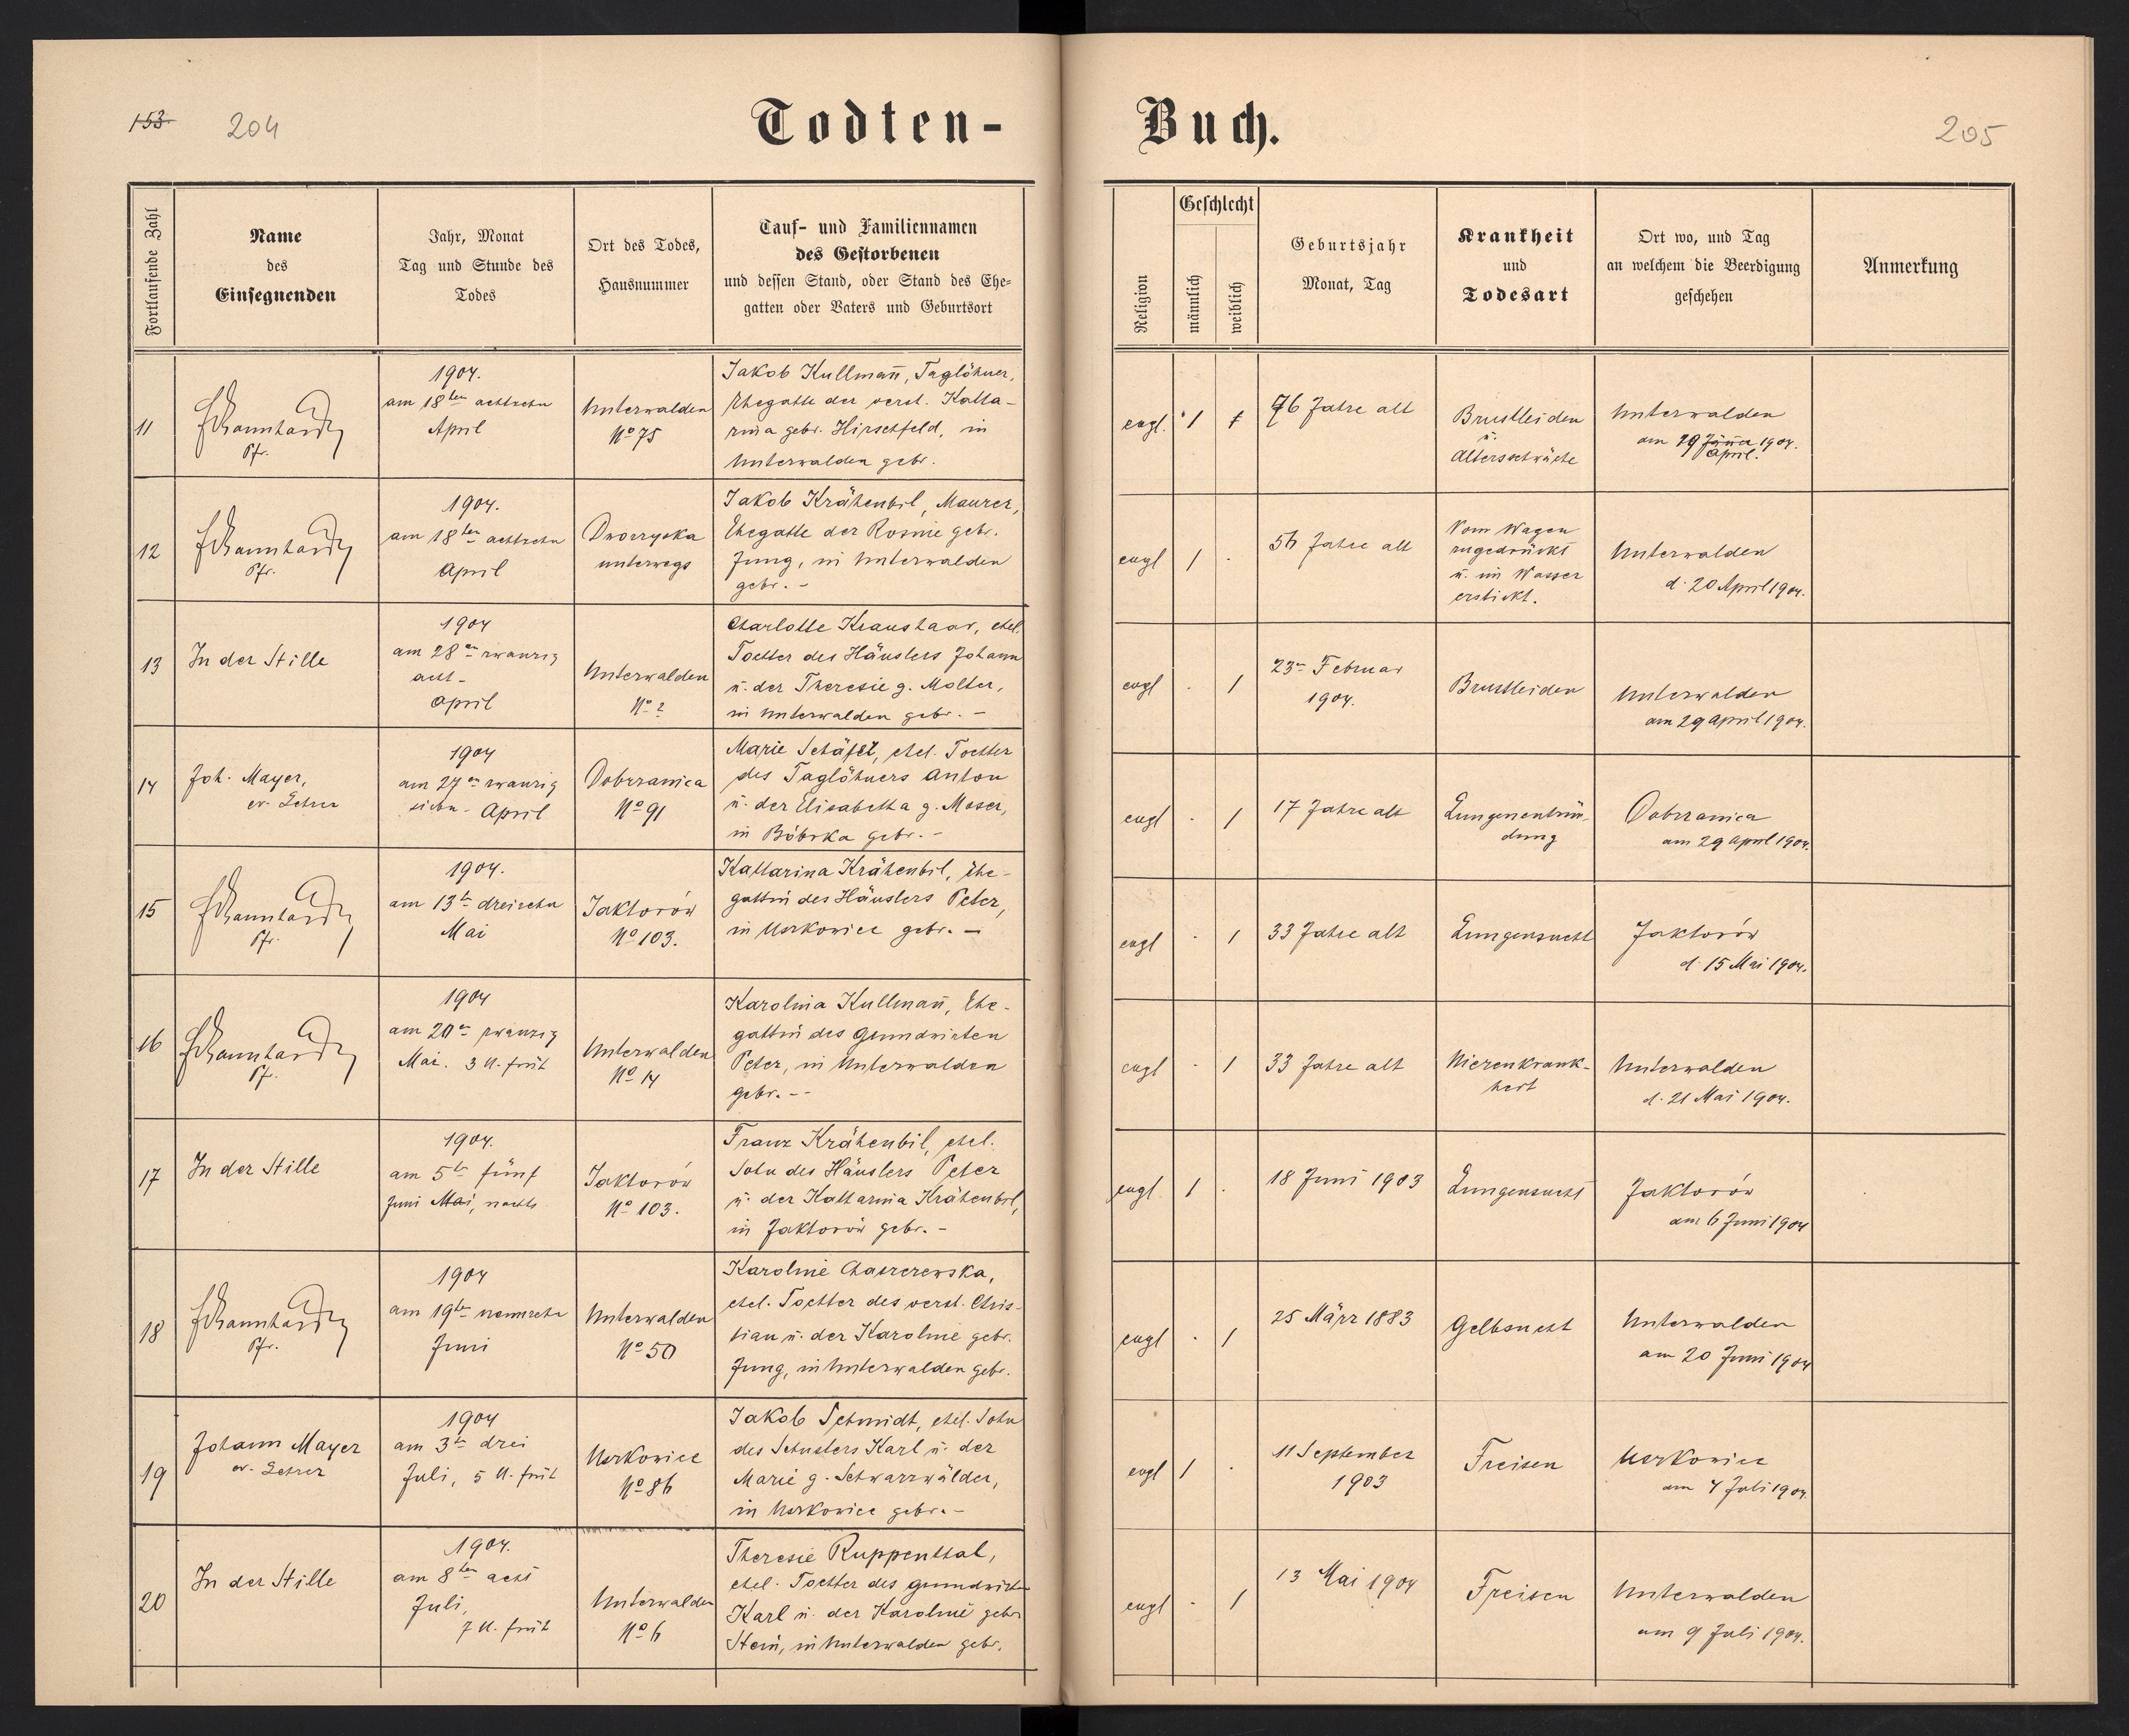 153 204
Todten-
Buch.
205
Fortlaufende Zahl
Name
des
Einsegnenden
Jahr, Monat
Tag und Stunde des
Todes
Ort des Todes,
Hausnummer
Tauf- und Familiennamen
des Gestorbenen
und dessen Stand, oder Stand des Ehe-
gatten oder Vaters und Geburtsort
Religion
Geschlecht
männlich
weiblich
Geburtsjahr
Monat, Tag
Krankheit
und
Todesart
Ort wo, und Tag
an welchem die Beerdigung
geschehen
Anmerkung
11
Pfr.
1904.
am 18ten achtzehn
April
Unterwalden
No 75
Jakob Kullmann̄, Taglöhner,
Ehegatte der verst. Katha-
rina gebr. Hirschfeld, in
Unterwalden gebr.
evgl. 1
76 Jahre alt
Brustleiden
u.
Altersschwäche
Unterwalden
am 19 Jänner 1904.
April.
12
Pfr.
1904.
am 18ten achtzehn
April
Dworzyska
unterwegs
Jakob Krähenbil, Maurer,
Ehegatte der Rosine gebr.
Jung, in Unterwalden
gebr. -
evgl 1 .
56 Jahre alt
Vom Wagen
zugedrückt
u. im Wasser
erstickt.
Unterwalden
d. 20 April 1904.
13
In der Stille
1904
am 28en zwanzig
acht-
April
Unterwalden
No ?
Charlotte Kraushaar, ehel.
Tochter des Häuslers Johann
u. der Theresie g. Molter,
in Unterwalden gebr. -
evgl . 1
23en Februar
1904.
Brustleiden
Unterwalden
am 29 April 1904.
14
Joh. Mayer,
ev. Lehrer
1904
am 27en zwanzig
sieben - April
Dobrzanica
No 91
Marie Schäfer, ehel. Tochter
des Taglöhners Anton
u. der Elisabetha g. Moser,
in Bóbrka gebr. -
evgl . 1
17 Jahre alt
Lungenentzün-
dung
Dobrzanica
am 29 April 1904.
15
Pfr.
1904.
am 13te dreizehn
Mai
Jaktorów
No 103.
Katharina Krähenbil, Ehe-
gattin des Häuslers Peter,
in Uszkowice gebr. -
evgl . 1
33 Jahre alt
Lungensucht
Jaktorów
d. 15 Mai 1904.
16
Pf.
1904
am 20en zwanzig
Mai. 3 U. früh
Unterwalden
No 14
Karolina Kullmann̄, Ehe-
gattin des Grundwirten
Peter, in Unterwalden
gebr. --
evgl . 1
33 Jahre alt
Nierenkrank-
heit
Unterwalden
d. 21 Mai 1904.
17
In der Stille
1904.
am 5te fünf
Juni Mai, nachts
Jaktorów
No 103.
Franz Krähenbil, ehel.
Sohn des Häuslers Peter
u. der Katharina Krähenbil,
in Jaktorów gebr. -
evgl. 1 .
18 Juni 1903
Lungensucht
Jaktorów
am 6 Juni 1904
18
Pfr.
1904
am 19te neunzehn
Juni
Unterwalden
No 50
Karoline Chaszczewska,
ehel. Tochter des verst. Chris-
tian u. der Karoline gebr.
Jung, in Unterwalden gebr.
evgl . 1
25 März 1883
Gelbsucht
Unterwalden
am 20 Juni 1904
19
Johann Mayer
ev. Lehrer
1904
am 3te drei
Juli, 5 U. früh
Uszkowice
No 86
Jakob Schmidt, ehel. Sohn
des Schusters Karl u. der
Marie g. Schwarzwälder,
in Uszkowice gebr. -
evgl 1 .
11 September
1903
Freisen
Uszkowice
am 4 Juli 1904.
20
In der Stille
1904.
am 8ten acht
Juli,
7 U. früh
Unterwalden
No 6
Theresie Ruppenthal,
ehel. Tochter des Grundwirten
Karl u. der Karoline gebr
Stein, in Unterwalden gebr.
evgl . 1
13 Mai 1904
Freisen
Unterwalden
am 9 Juli 1904.